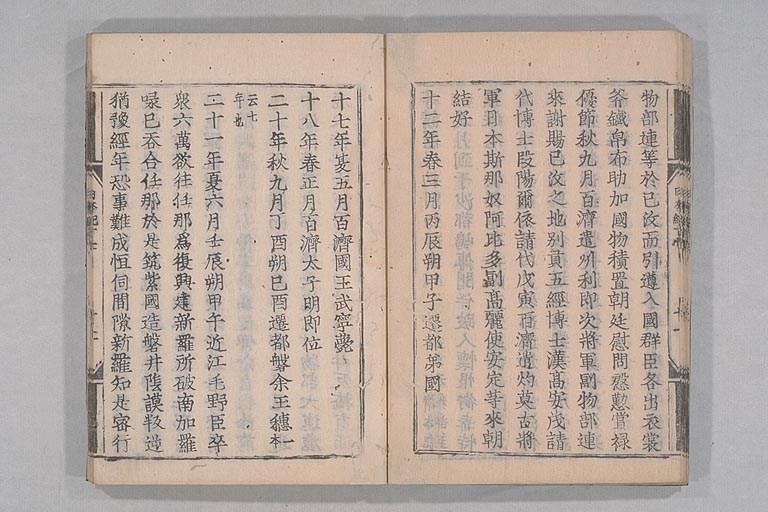 物部連等於己汶而引遵入國群臣各出衣裳
斧鐵帛布助加國物積置朝廷慰問慇懃賞祿
優節秋九月百濟遣州利即次將軍副物部連
來謝賜己汶之地別貢五經博士漢高安茂請
代博士段陽爾依請代戊寅百濟遣灼莫古將
軍日本斯那奴阿比多副高麗使安定等來朝
結好
十二年春三月丙辰朔甲子遷都弟國
十七年夏五月百濟國王武寧薨
十八年春正月百濟太子明即位
二十年秋九月丁酉朔己酉遷都磐余玉穗一本
云七
年也
二十一年夏六月壬辰朔甲午近江毛野臣率
衆六萬欲往任那為復興建新羅所破南加羅
㖨己吞合任那於是筑紫國造磐井陰謨叛逆
猶豫經年恐事難成恒伺間隙新羅知是密行